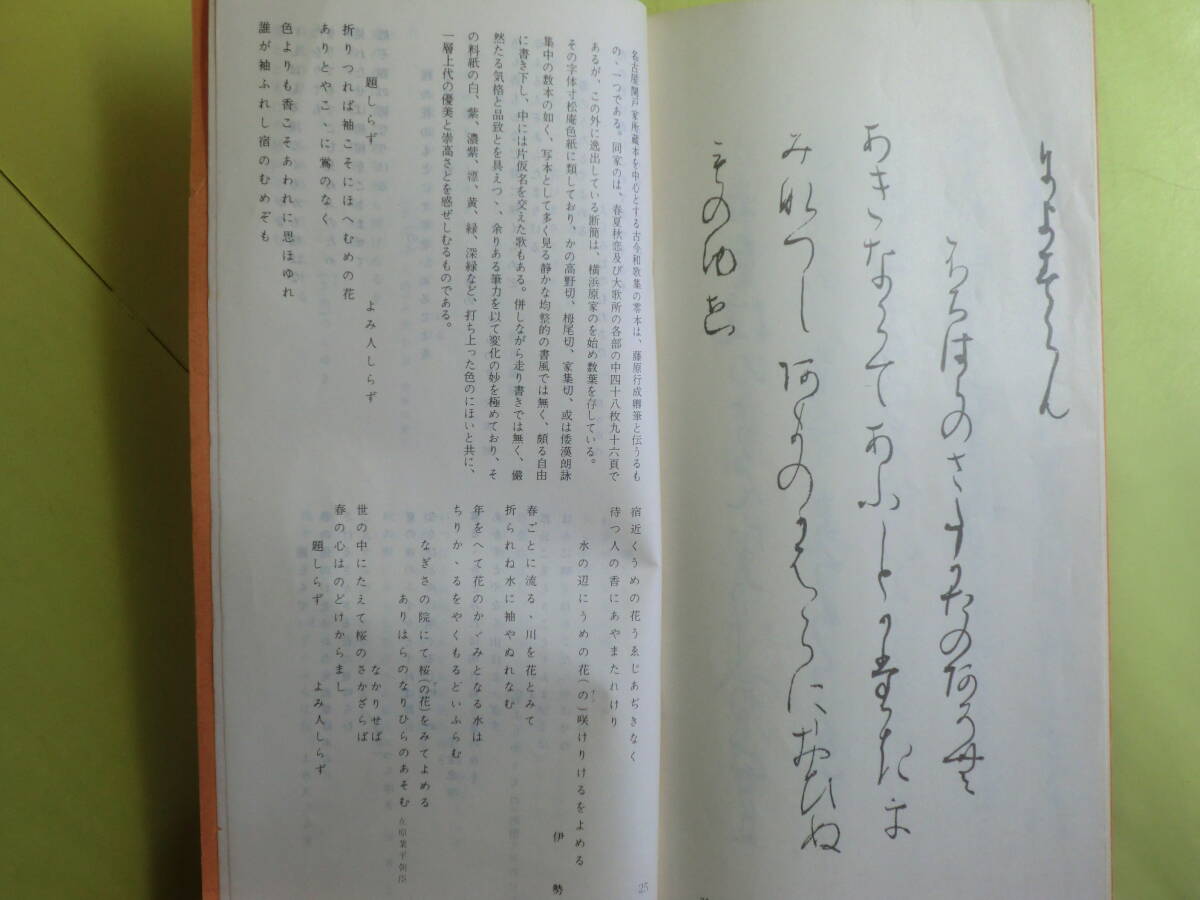 ふちはらのさたかたのあそむ
あきならてあふことかたきを
みなへしあまのかはらにおひぬ
ものゆゑ
名古屋関戸家所蔵本を中心とする古今和歌集の零本は、藤原行成卿筆と伝うるも
の、一つである。同家のは、春夏秋恋及び大歌所の各部の中四十八枚九十六頁で
あるが、この外に逸出している断簡は、横浜原家のを始め数葉を存している。
その字体寸松庵色紙に類しており、かの高野切、栂尾切、家集切、或は倭漢朗詠
集中の数本の如く、写本として多く見る静かな均整的の書風では無く、頗る自由
に書き下し、中には片仮名を交えた歌もある。併しながら走り書きでは無く、儼
然たる気格と品致とを具えつゝ、余りある筆力を以て変化の妙を極めており、そ
の料紙の白、紫、濃紫、漂、黄、緑、深緑など、打ち上った色のにほいと共に、
一層上代の優美と崇高さとを感ぜしむるものである。
題しらず
よみ人しらず
折りつれば袖こそにほへむめの花
ありとやこゝに鶯のなく
色よりも香こそあわれに思ほゆれ
誰が袖ふれし宿のむめぞも
宿近くうめの花うゑじあぢきなく
待つ人の香にあやまたれけり
水の辺にうめの花(の)咲けりけるをよめる
伊勢
春ごとに流るゝ川を花とみて
折られね水に袖やぬれなむ
年をへて花のかゞみとなる水は
ちりかゝるをやくもるどいふらむ
なぎさの院にて桜(の花)をみてよめる
ありはらのなりひらのあそむ 在原業平朝臣
世の中にたえて桜のさかざらば
なかりせば
春の心はのどけからまし
題しらず
よみ人しらず
25